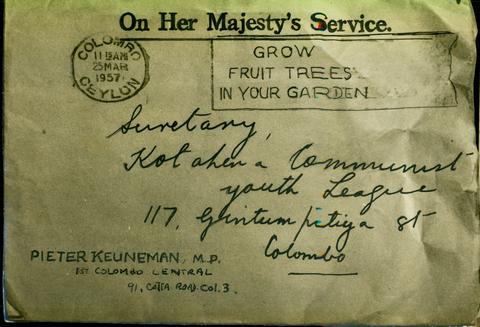 On Her Majesty's Service.
COLOMBO
11 15 AM
25 MAR
1957
CEYLON
GROW
FRUIT TREES
IN YOUR GARDEN
Secretary,
Kotahena Communist
youth League
117, Gintumpitiya St
Colombo
PIETER KEUNEMAN, M.P.
1ST COLOMBO CENTRAL
91, COTTA ROAD. COL. 3.